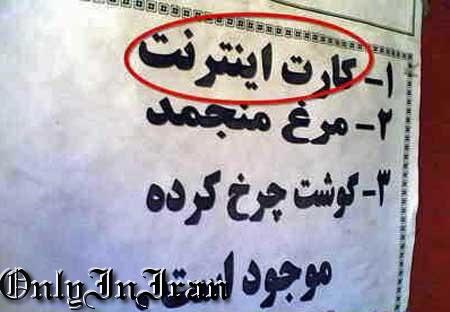 ۱- کارت اینترنت
۲- مرغ منجمد
۳- گوشت چرخ کرده
موجود است
OnlyInIran